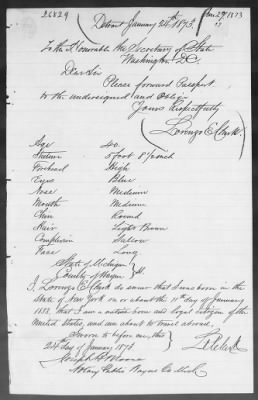 26829
Jan 27th 1873
Detroit January 24th 1873.
To the Honorable the Secretary of State
Washington D.C.
Dear Sir
Please forward Passport
to the undersigned and oblige
Yours Respectfully
Lorenzo E. Clark
Age 40.
Stature 5 foot 8 1/2 inch
Forehead High
Eyes Blue
Nose Medium
Mouth Medium
Chin Round
Hair Light Brown
Complexion Sallow
Face Long
State of Michigan
County of Wayne } ss.
I, Lorenzo E. Clark do swear that I was born in the
State of New York on or about the 11th day of January
1833, that I am a native born and loyal citizen of the
United States, and am about to travel abroad,
Sworn to before me, this
24th day of January 1873
L E Clark
Joseph
Notary Public Wayne Co Mich